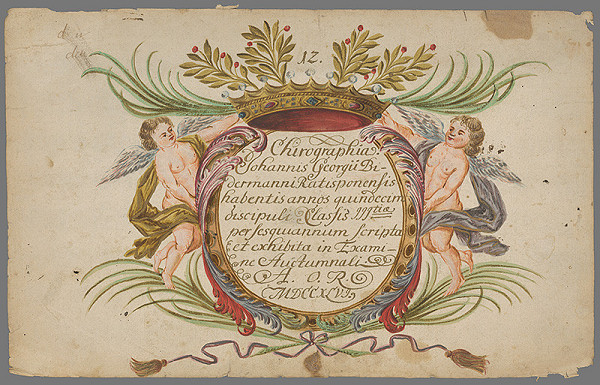 12.
Chirographia
Johannis Georgii Bi-
dermanni Ratisponensis
habentis annos quindecim
discipuli Classis IIItiæ
per sesquiannum scripta
Et exhibita in Exami-
ne Auctumnali
A. O. R
MDCCXLVI